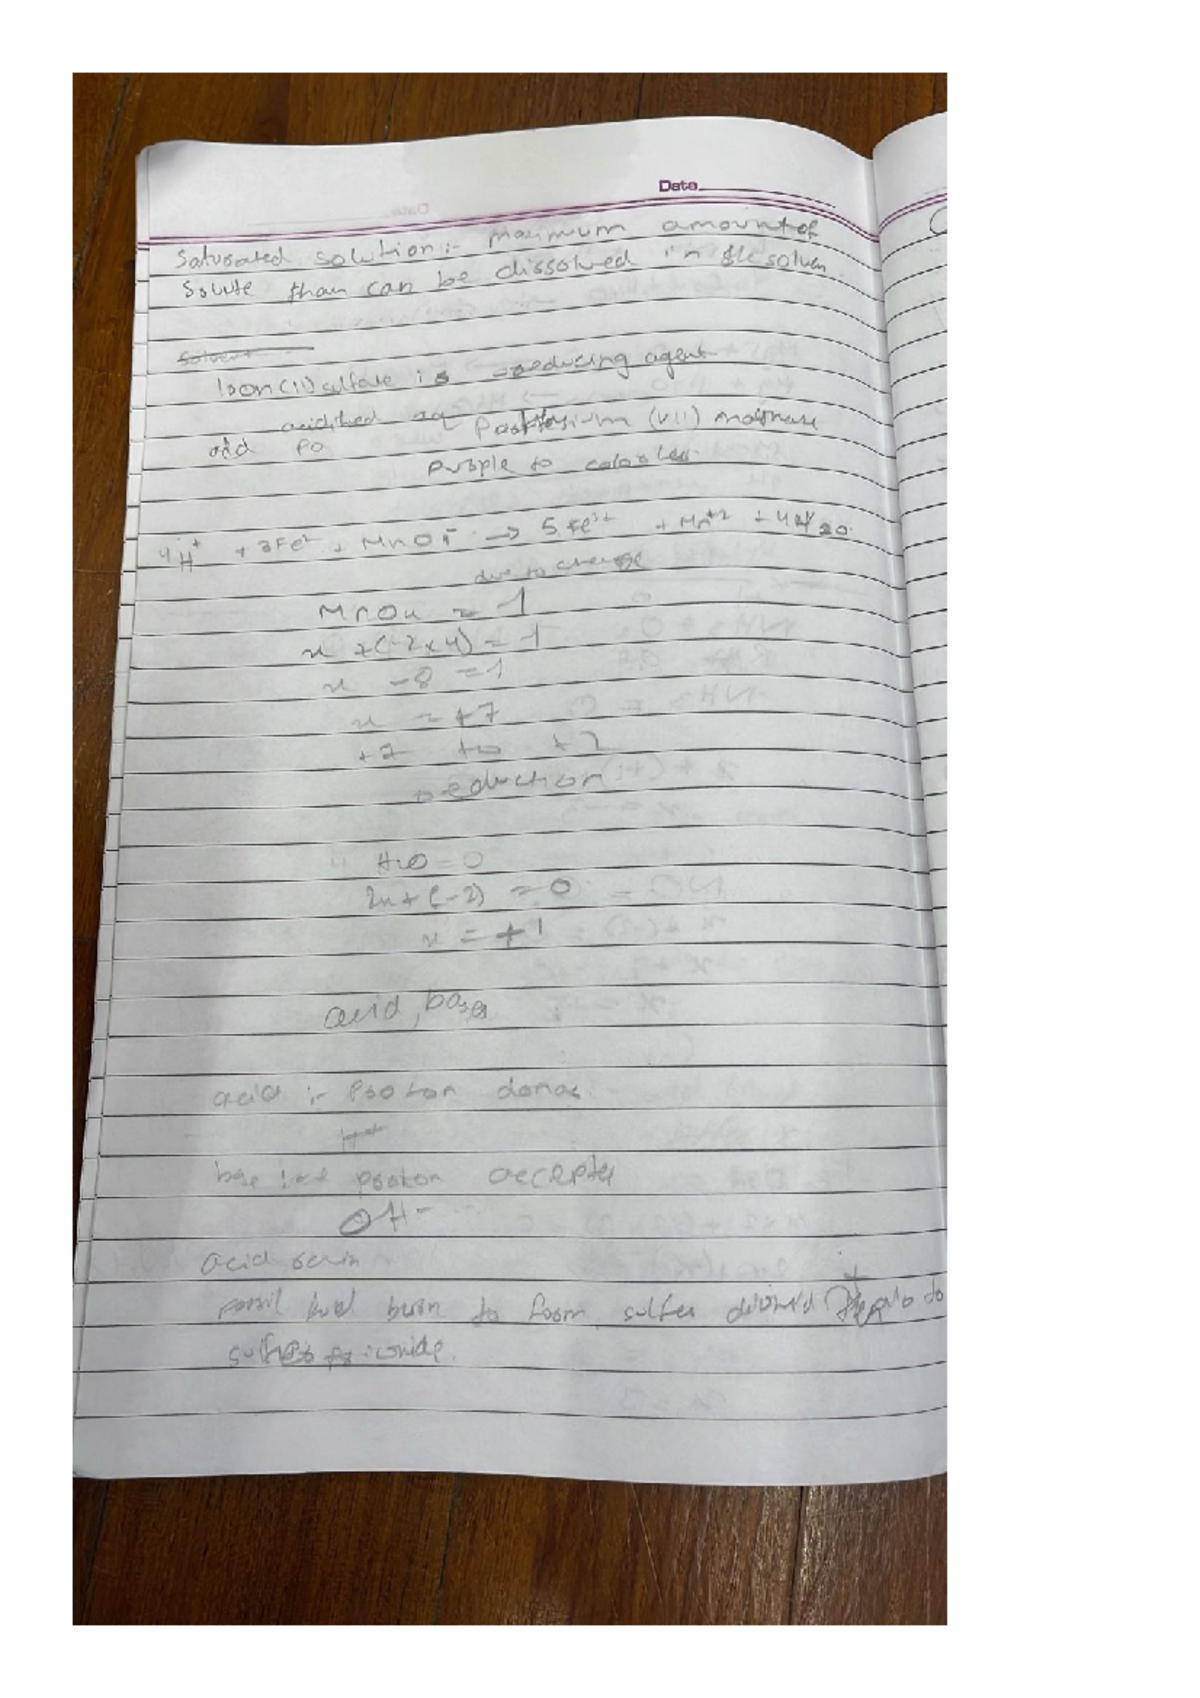 Date
Saturated solution:- maximum amount of
Solute than can be dissolved in the solven
Solvent
Iron(ii) sulfate is reducing agent
acidified aq Potassium (VII)
add Po
purple to colorless
4H⁺ + 3Fe² + MnO4⁻ → 5Fe³⁺ + Mn⁺² + 4H20
due to change
MnO4 = -1
x + (-2x4) = -1
x - 8 = -1
x = +7
+7 to +2
reduction
H2O = 0
2x + (-2) = 0
x = +1
acid, bases
acid :- Proton donor
H+
base :- proton accepter
OH-
acid rain
fossil fuel burn to form sulfer to